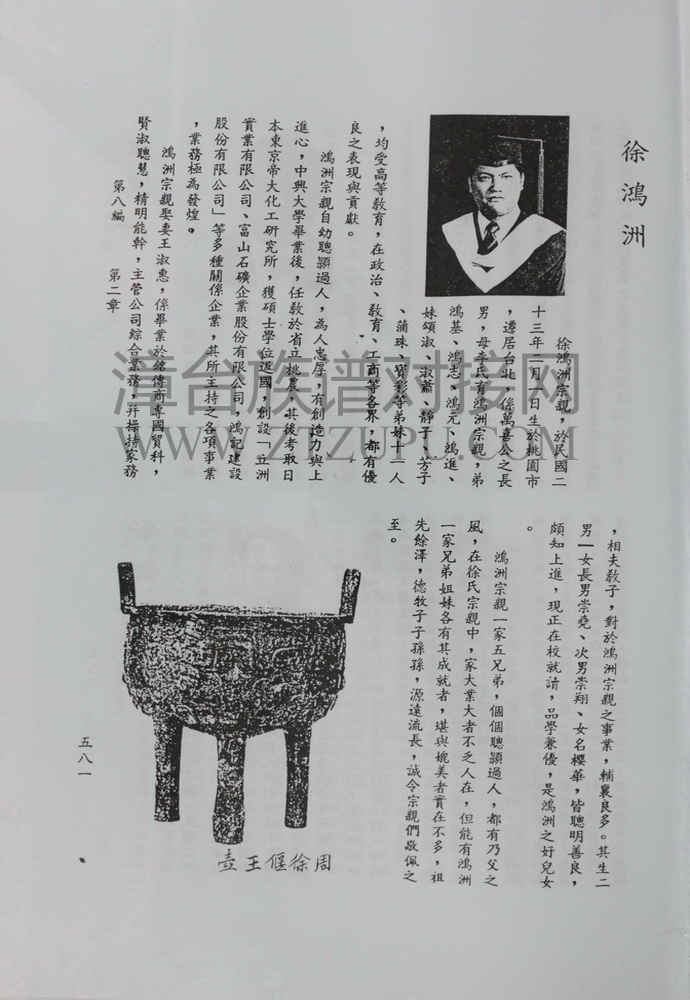 徐鴻洲
徐鴻洲宗親，於民國二
十三年二月一日生於桃園市
，遷居台北，係萬喜公之長
男，母李氏育鴻洲宗親，弟
鴻基、鴻志、鴻元、鴻進、
妹頌淑、淑蕭、靜子、芳子
、蒲珠、寶彩等弟妹十一人
，均受高等敎育，在政治、敎育、工商等各界，都有優
良之表現與貢獻。
鴻洲宗親自幼聰穎過人，為人忠厚，有創造力與上
進心，中興大學畢業後，任敎於省立桃農，其後考取日
本東京帝大化工研究所，獲碩士學位返國，創設「立洲
實業有限公司、富山石礦企業股份有限公司、鴻記建設
股份有限公司」等多種關係企業，其所主持之各項事業
，業務極為發煌。
鴻洲宗親娶妻王淑惠，係畢業於銘傳商專國貿科，
賢淑聰慧，精明能幹，主管公司綜合業務，并操持家務
第八編　第二章
，相夫敎子，對於鴻洲宗親之事業，輔襄良多。其生二
男一女長男崇堯、次男崇翔、女名櫻華，皆聰明善良，
頗知上進，現正在校就讀，品學兼優，是鴻洲之好兒女
。
鴻洲宗親一家五兄弟，個個聰穎過人，都有乃父之
風，在徐氏宗親中，家大業大者不乏人在，但能有鴻洲
一家兄弟姐妹各有其成就者，堪與媲美者實在不多，祖
先餘澤，德牧子子孫孫，源遠流長，誠令宗親們敬佩之
至。
周徐偃王壺
五八一
漳台族谱对接网
WWW.ZTZUPU.COM